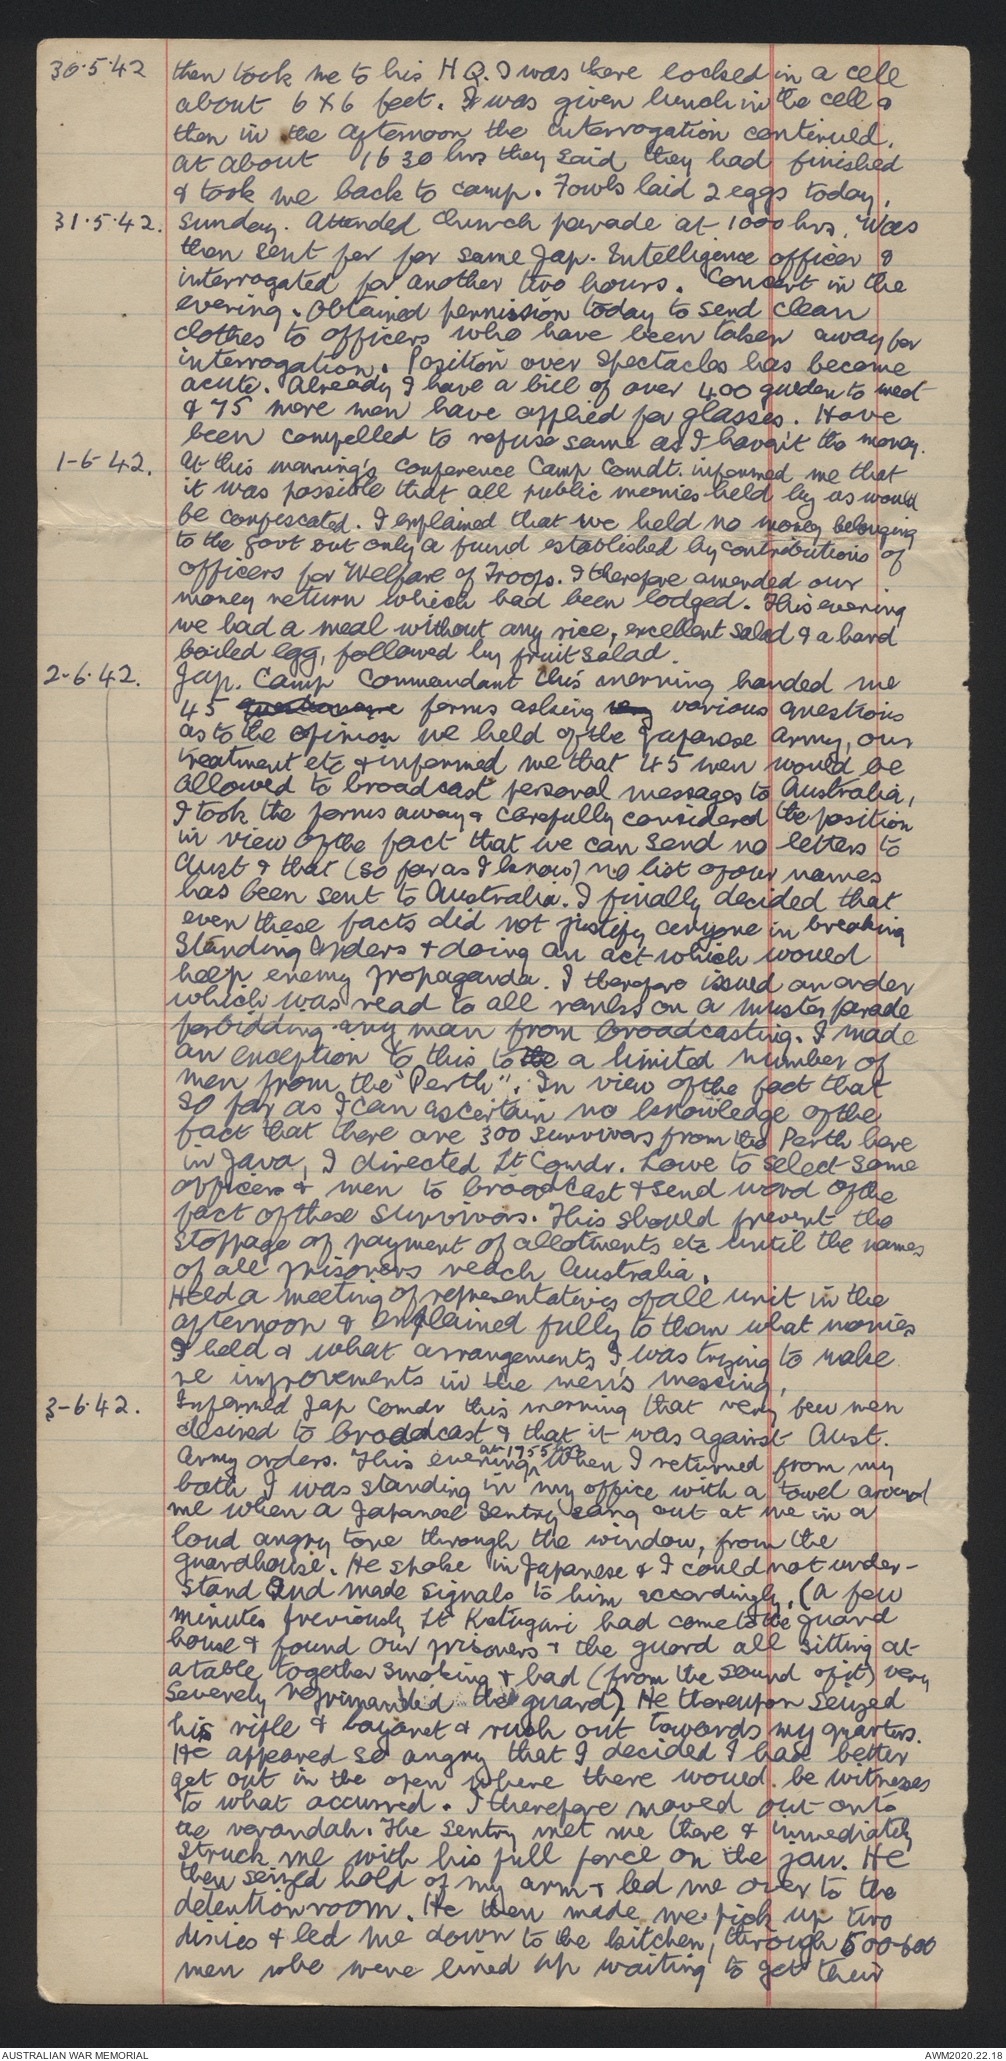 30.5.42 then took me to his HQ. I was there locked in a cell
about 6 x 6 feet. I was given lunch in the cell &
then in the afternoon the interrogation continued.
at about 1630 hrs they said they had finished
& took me back to camp. Fowls laid 2 eggs today.
31.5.42. Sunday. Attended Church parade at 1000 hrs. Was
then sent for for same Jap. Intelligence officer &
interrogated for another two hours. Concert in the
evening. Obtained permission today to send clean
clothes to officers who have been taken away for
interrogation. Position over Spectacles has become
acute. Already I have a bill of over 400 gulden to meet
& 75 more men have applied for glasses. Have
been compelled to refuse same as I haven't the money.
1-6-42. At this morning's conference Camp Comdt. informed me that
it was possible that all public monies held by us would
be confiscated. I explained that we held no money belonging
to the Govt but only a fund established by contributions of
officers for Welfare of Troops. I therefore amended our
money return which had been lodged. This evening
we had a meal without any rice, excellent salad & a hard
boiled egg, followed by fruit salad.
2-6-42. Jap. Camp Commandant this morning handed me
45 forms asking various questions
as to the opinion we held of the Japanese Army, our
treatment etc & informed me that 45 men would be
allowed to broadcast personal messages to Australia,
I took the forms away & carefully considered the position
in view of the fact that we can send no letters to
Aust & that (so far as I know) no list of our names
has been sent to Australia. I finally decided that
even these facts did not justify anyone in breaking
Standing Orders & doing an act which would
help enemy propaganda. I therefore issued an order
which was read to all ranks on a muster parade
forbidding any man from broadcasting. I made
an exception to this to the a limited number of
men from the "Perth". In view of the fact that
so far as I can ascertain no knowledge of the
fact that there are 300 survivors from the Perth here
in Java, I directed Lt Comdr. Lowe to select some
officers & men to broadcast & send word of the
fact of these survivors. This should prevent the
stoppage of payment of allotments etc until the names
of all prisoners reach Australia.
Held a meeting of representatives of all unit in the
afternoon & explained fully to them what monies
I held & what arrangements I was trying to make
re improvements in the men's messing.
3-6-42. Informed Jap Comdr this morning that very few men
desired to broadcast & that it was against Aust.
Army orders. This evening at 1955 hrs when I returned from my
bath I was standing in my office with a towel around
me when a Japanese Sentry sang out at me in a
loud angry tone through the window, from the
guardhouse. He spoke in Japanese & I could not under-
stand and made signals to him accordingly. (A few
minutes previously Lt Katugari had come to the guard
house & found our prisoners & the guard all sitting at
a table together smoking & had (from the sound of it) very
severely reprimanded the guard). He thereupon seized
his rifle & bayonet & rush out towards my quarters.
He appeared so angry that I decided I had better
get out in the open where there would be witnesses
to what occurred. I therefore moved out onto
the verandah. The sentry met me there & immediately
struck me with his full force on the jaw. He
then seized hold of my arm & led me over to the
detention room. He then made me pick up two
dixies & led me down to the kitchen, through 500-600
men who were lined up waiting to get their
AUSTRALIAN WAR MEMORIAL
AWM2020.22.18